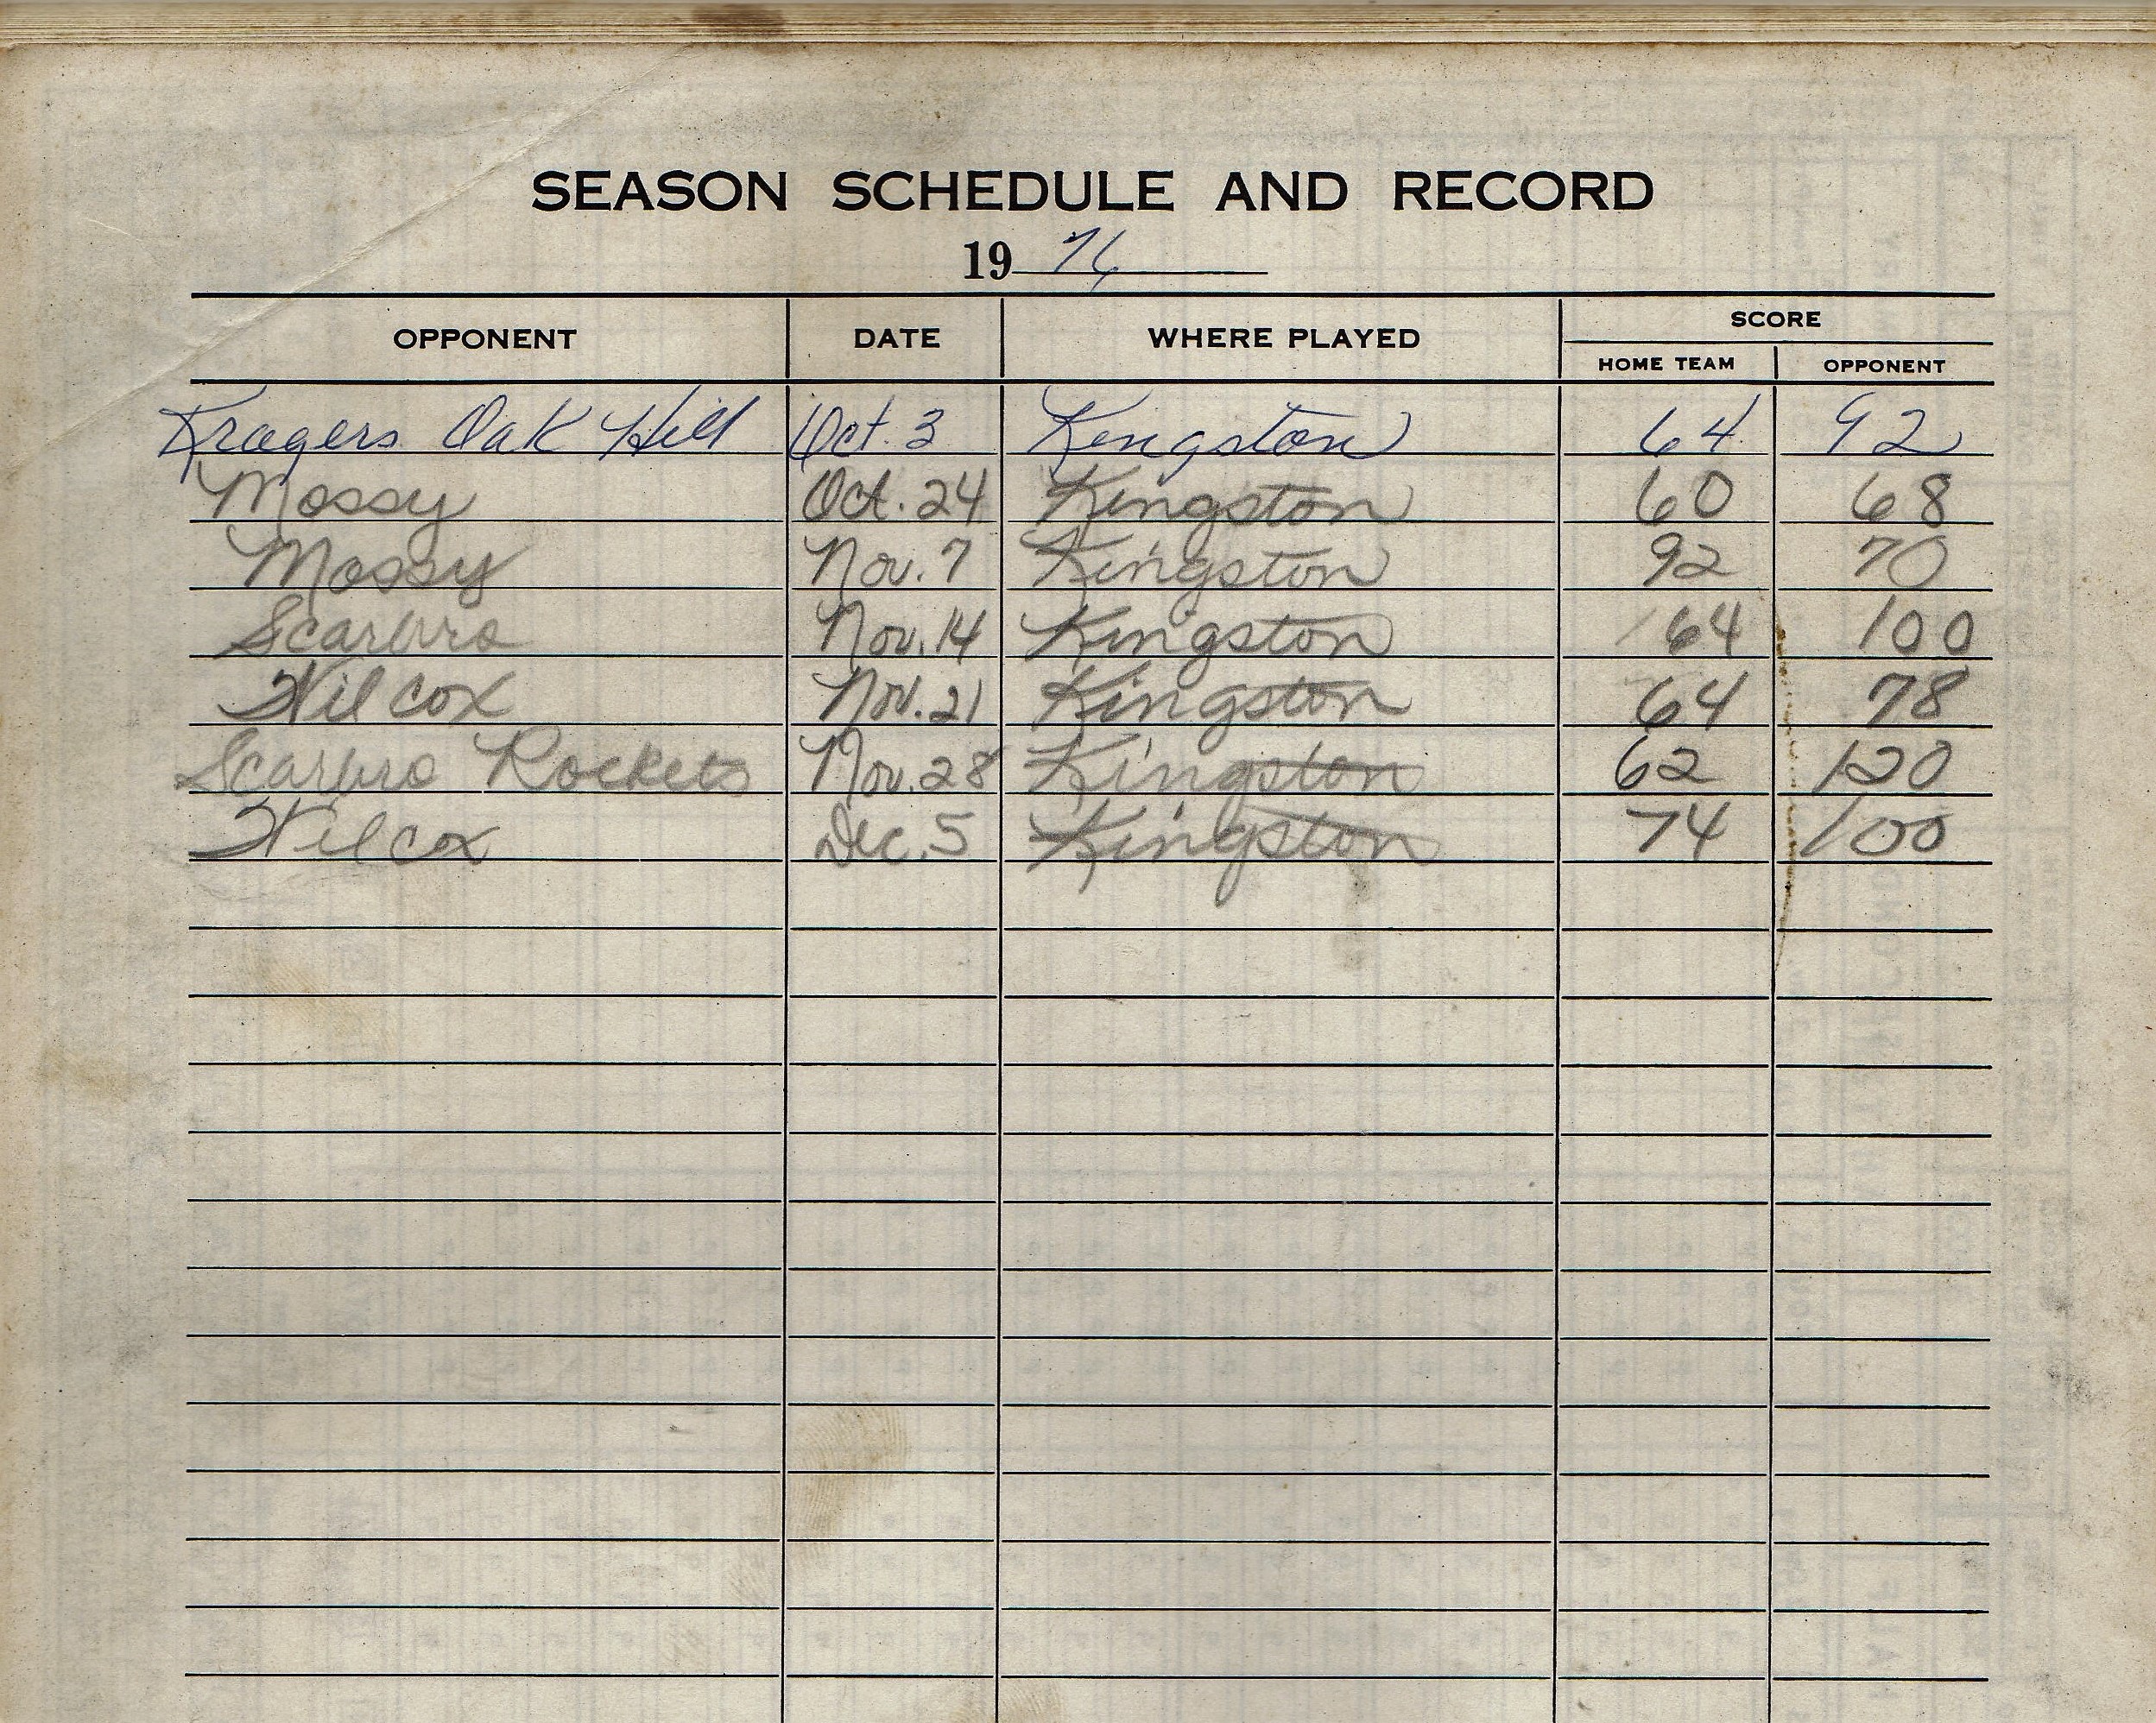 SEASON SCHEDULE AND RECORD
19 76
OPPONENT DATE WHERE PLAYED SCORE
HOME TEAM OPPONENT
Krogers Oak Hill Oct. 3 Kingston 64 92
Mossy Oct. 24 Kingston 60 68
Mossy Nov. 7 Kingston 92 70
Scarbro Nov. 14 Kingston 64 100
Wilcox Nov. 21 Kingston 64 78
Scarbro Rockets Nov. 28 Kingston 62 120
Wilcox Dec. 5 Kingston 74 100